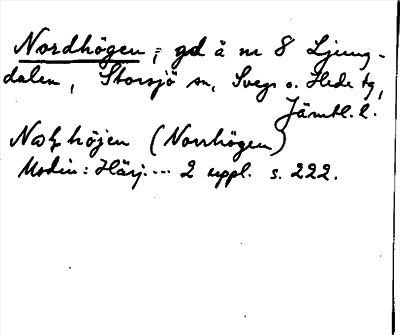 Nordhögen, gd å nr 8 Ljung-
dalen, Storsjö sn, Svegs o. Hede tg,
Jämtl. l.
höjen (Norrhögen)
Modin: Härj. ... 2 uppl. s. 222.